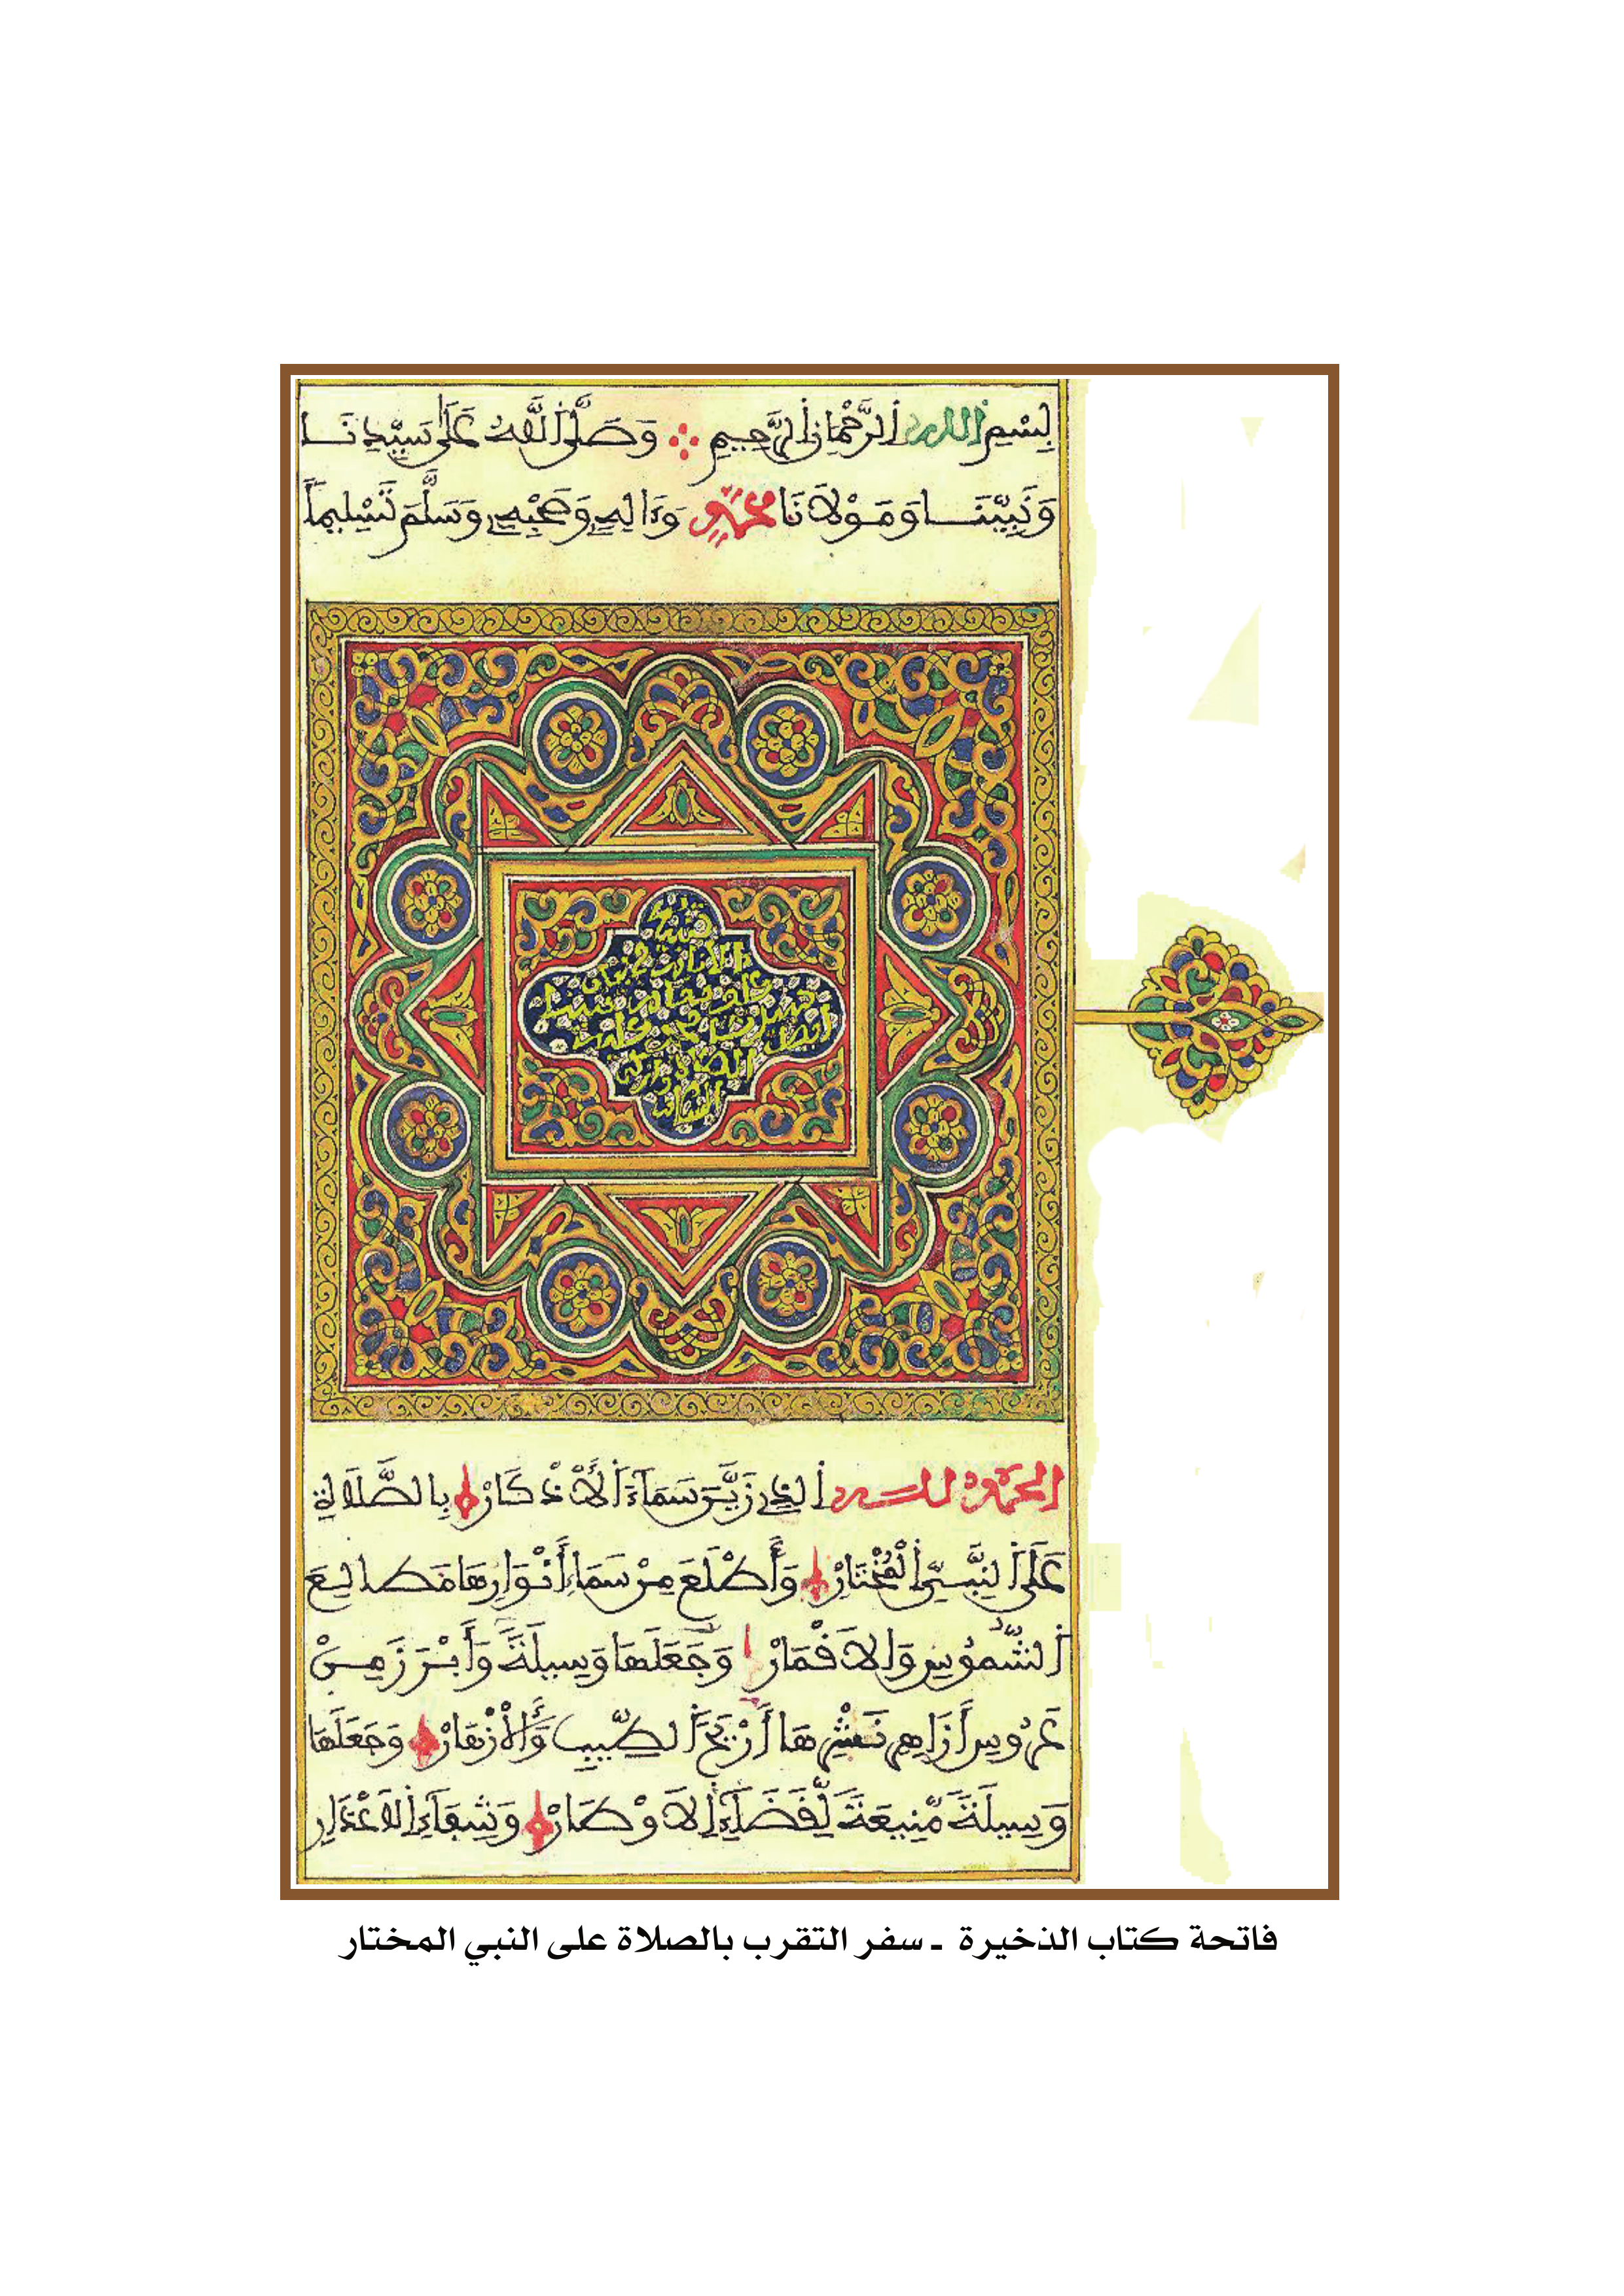 بِسْمِ اللهِ الرَّحْمَانِ الرَّحِيمِ وَصَلَّى اللَّهُ عَلَى سَيِّدِنَا
وَنَبِيِّنَا وَمَوْلَانَا مُحَمَّدٍ وَءَالِهِ وَصَحْبِهِ وَسَلَّمَ تَسْلِيماً
الحمد لله الذِي زَيَّنَ سَمَاءَ الْأَذْكَارْ بِالصَّلَاةِ
عَلَى النَّبِيِّ الْمُخْتَارْ وَأَطْلَعَ مِنْ سَمَاءِ أَنْوَارِهَا مَطَالِعَ
الشُّمُوسِ وَالْأَقْمَارْ وَجَعَلَهَا وَسِيلَةً وَأَبْرَزَ مِنْ
عَرُوسِ أَزَاهِرِ نَشْرِهَا أَرِيجَ الطِّيبِ وَالْأَزْهَارْ وَجَعَلَهَا
وَسِيلَةً مُنِيعَةً لِقَضَاءِ الْأَوْطَارْ وَشِفَاءِ الْأَعْذَارِ
فاتحة كتاب الذخيرة ـ سفر التقرب بالصلاة على النبي المختار